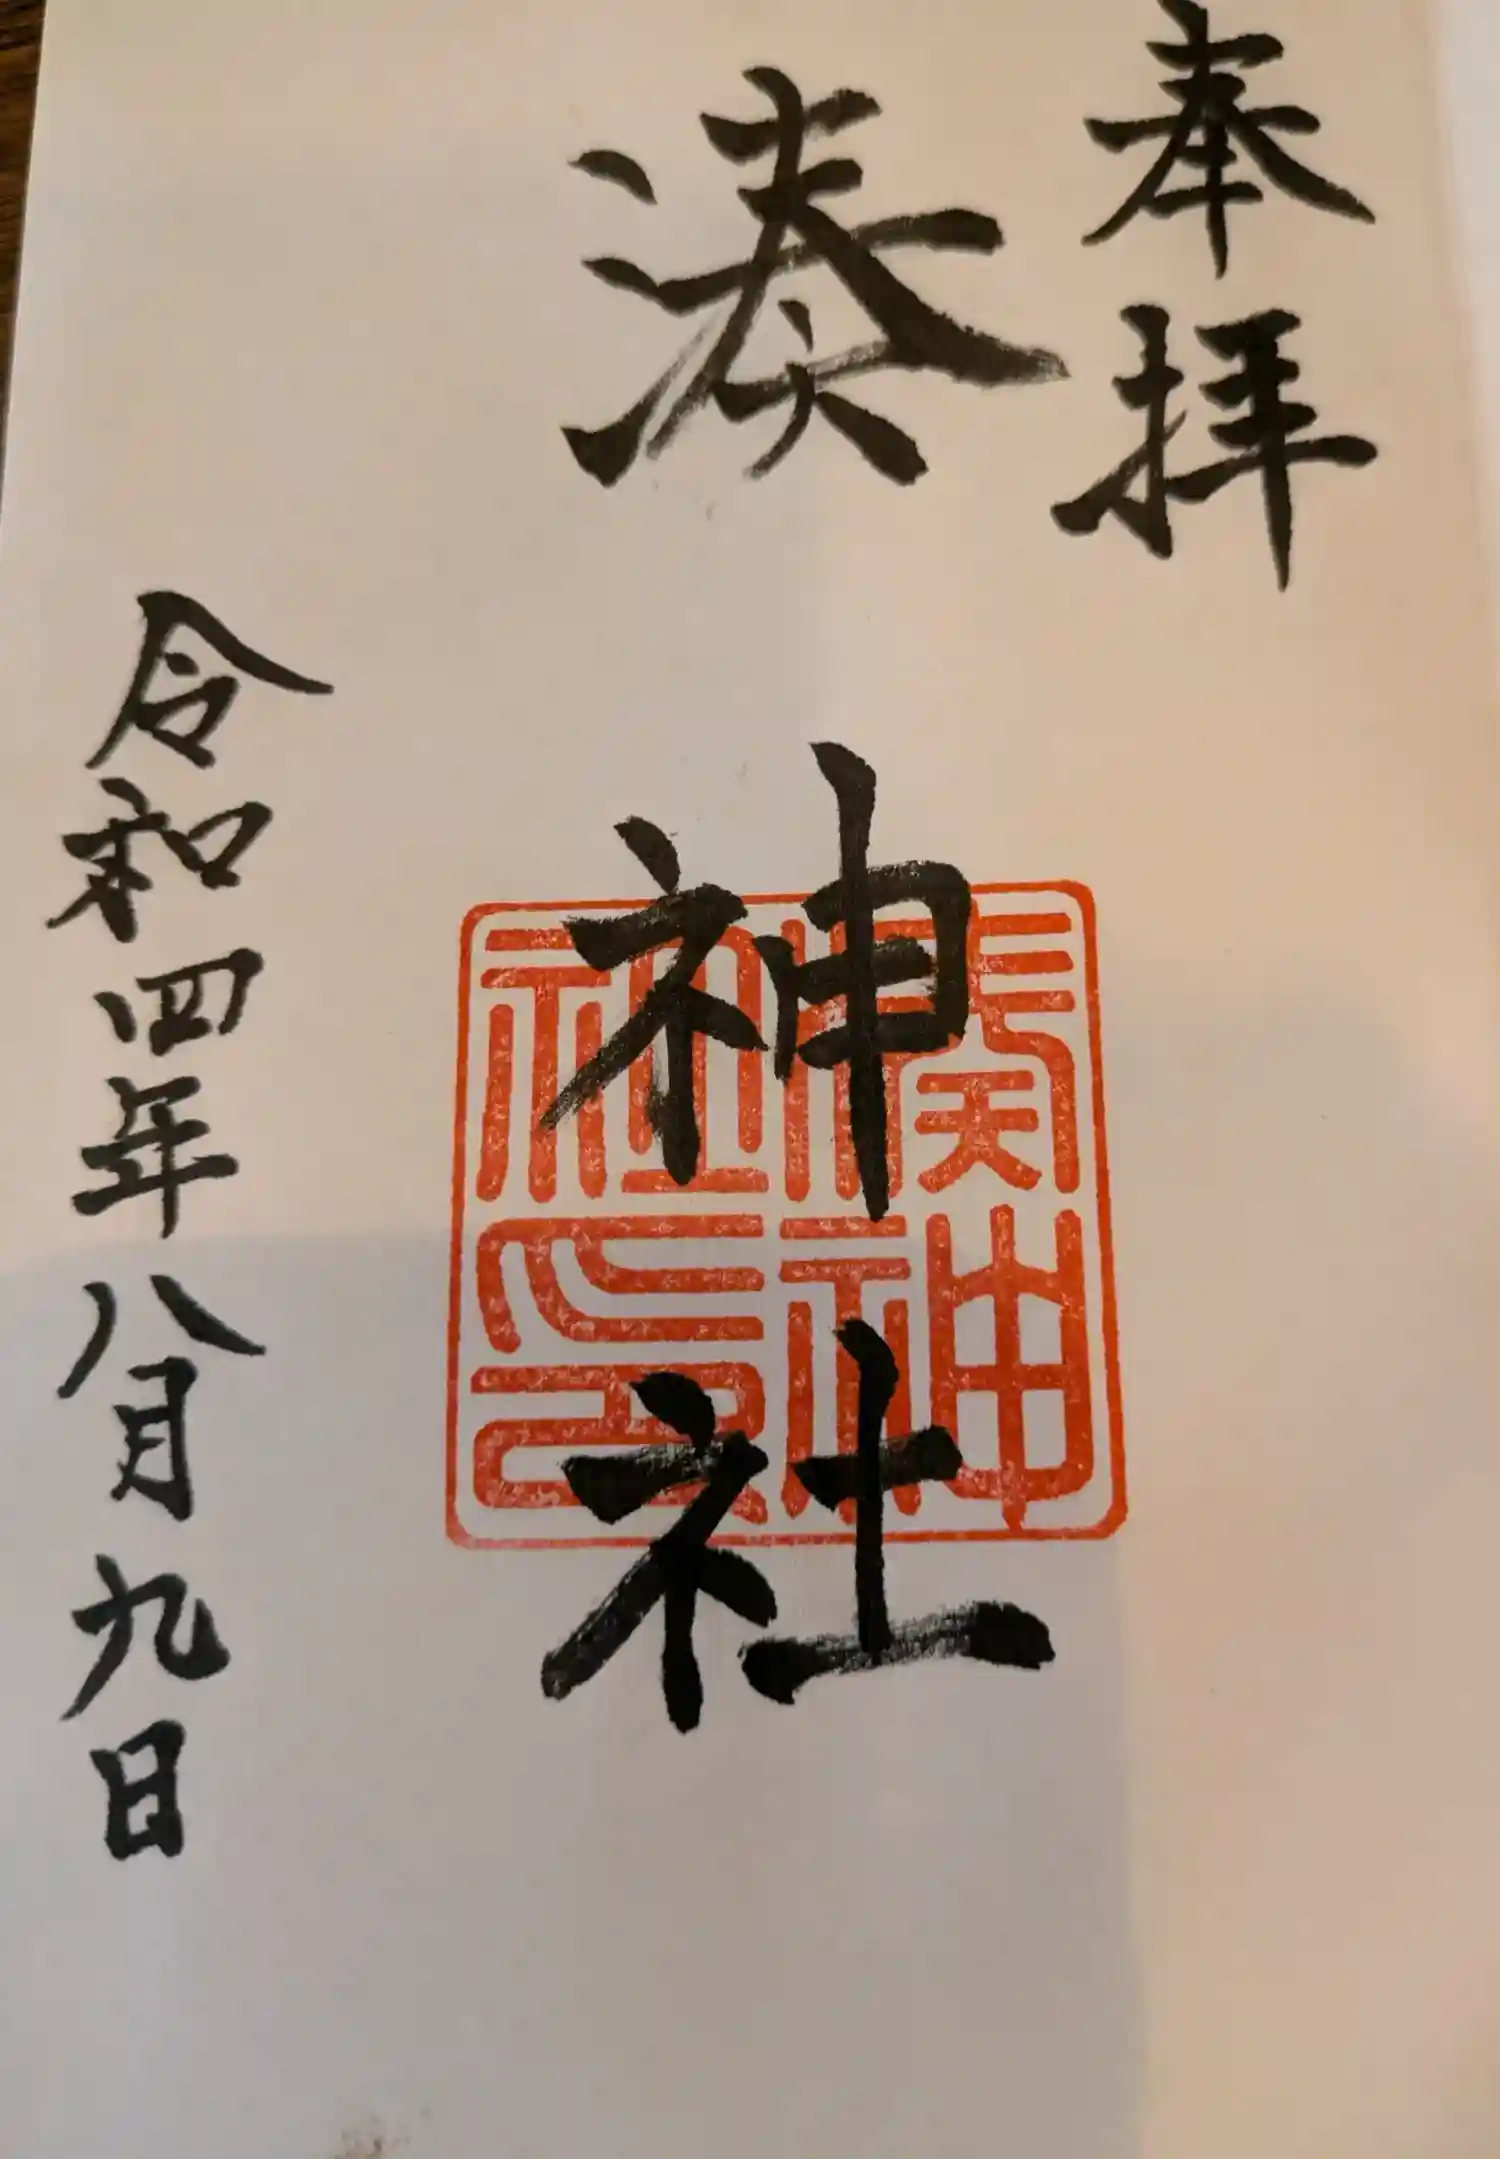 奉拝
湊神社
湊神社印
令和四年八月九日